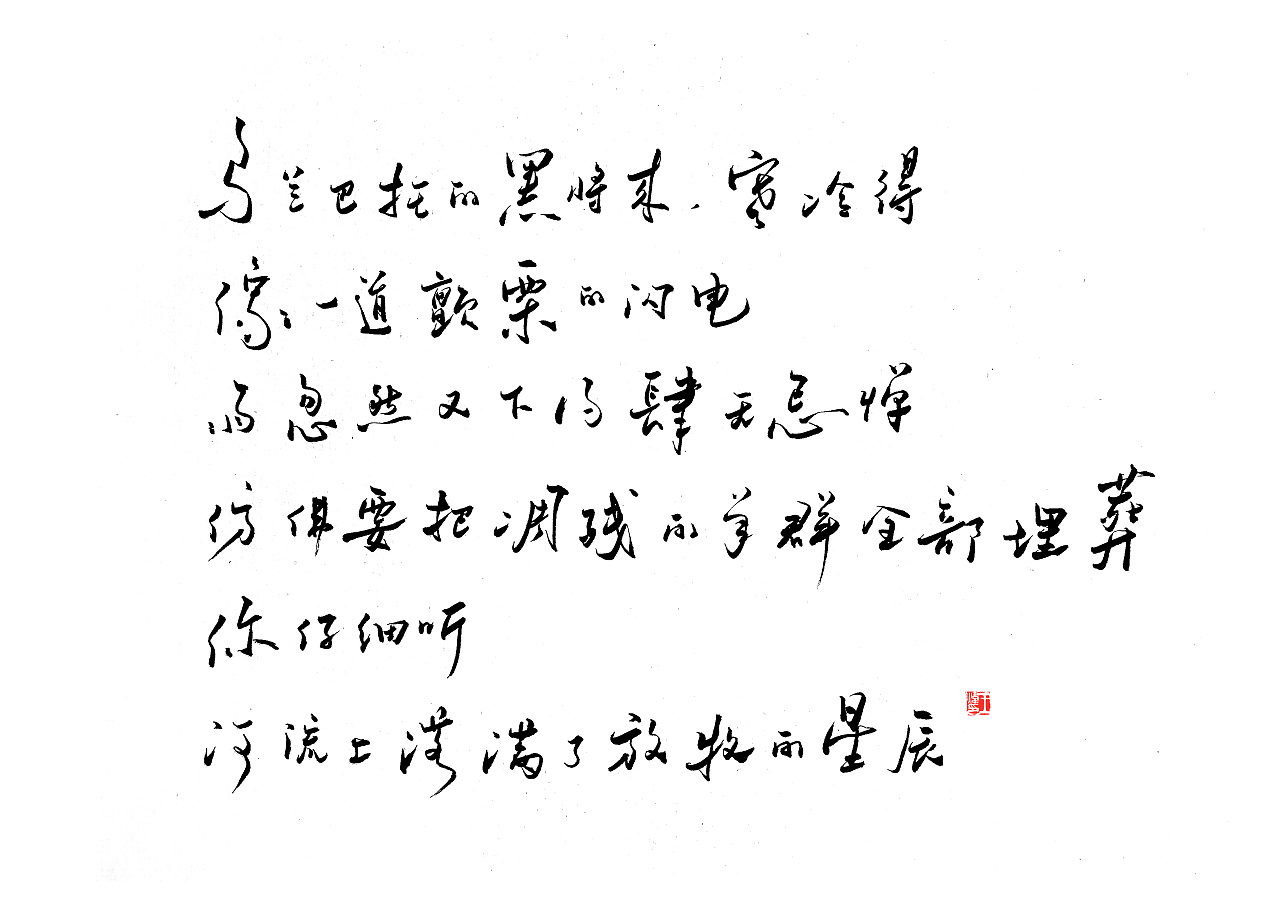 乌兰巴托的黑将来，寒冷得
像一道颤栗的闪电
而忽然又下得肆无忌惮
仿佛要把凋残的羊群全部埋葬
你仔细听
河流上落满了放牧的星辰